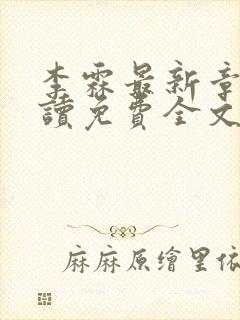 李霖最新章
讀免費全文
麻麻原繪里依